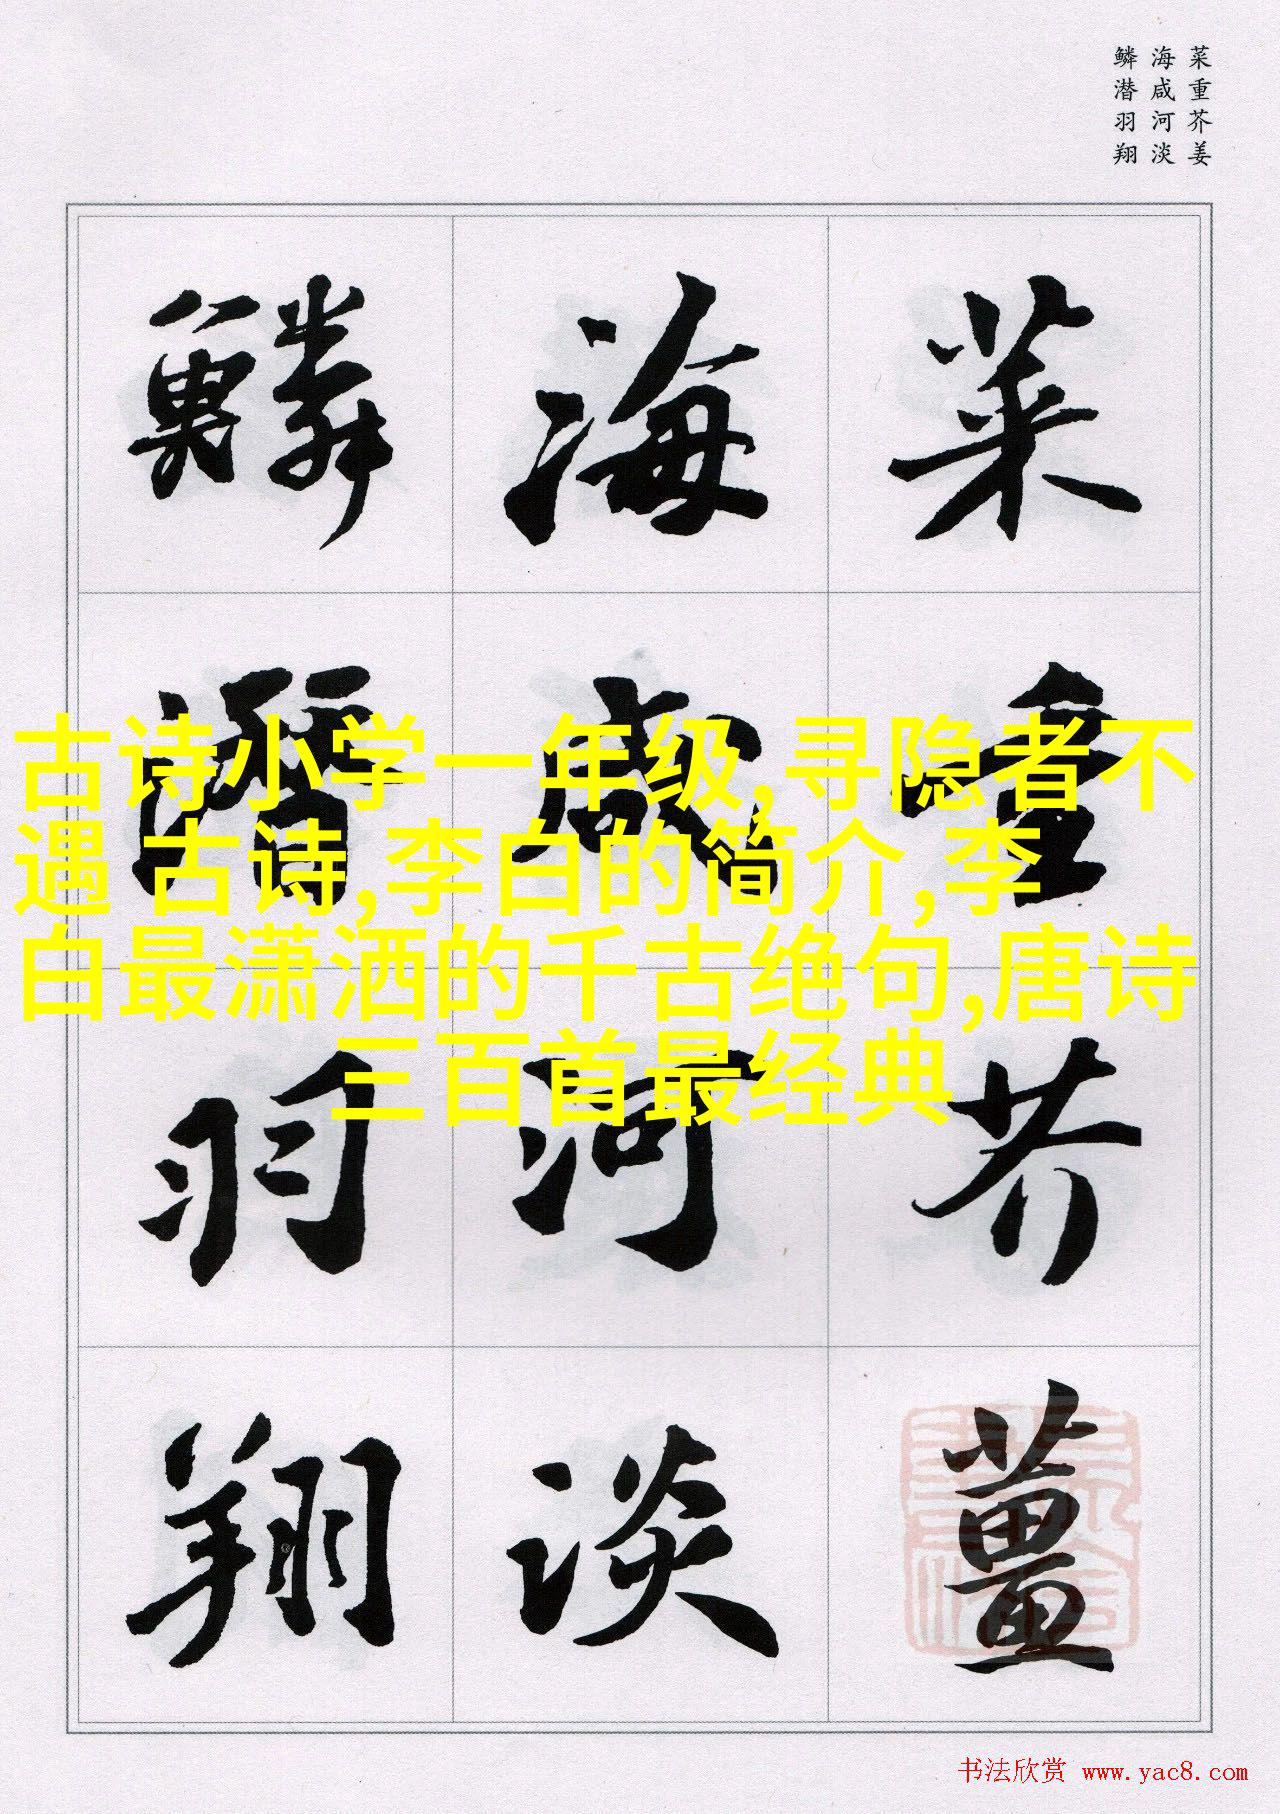 菜重芥姜
海咸河淡
鳞潜羽翔
菜重芥薑
海咸河淡
鱗潛羽翔
古诗小学一年级,寻隐者不
遇 古诗,李白的简介,李
白最潇洒的千古绝句,唐诗
三百首最经典
书法欣赏 www.yac8.com